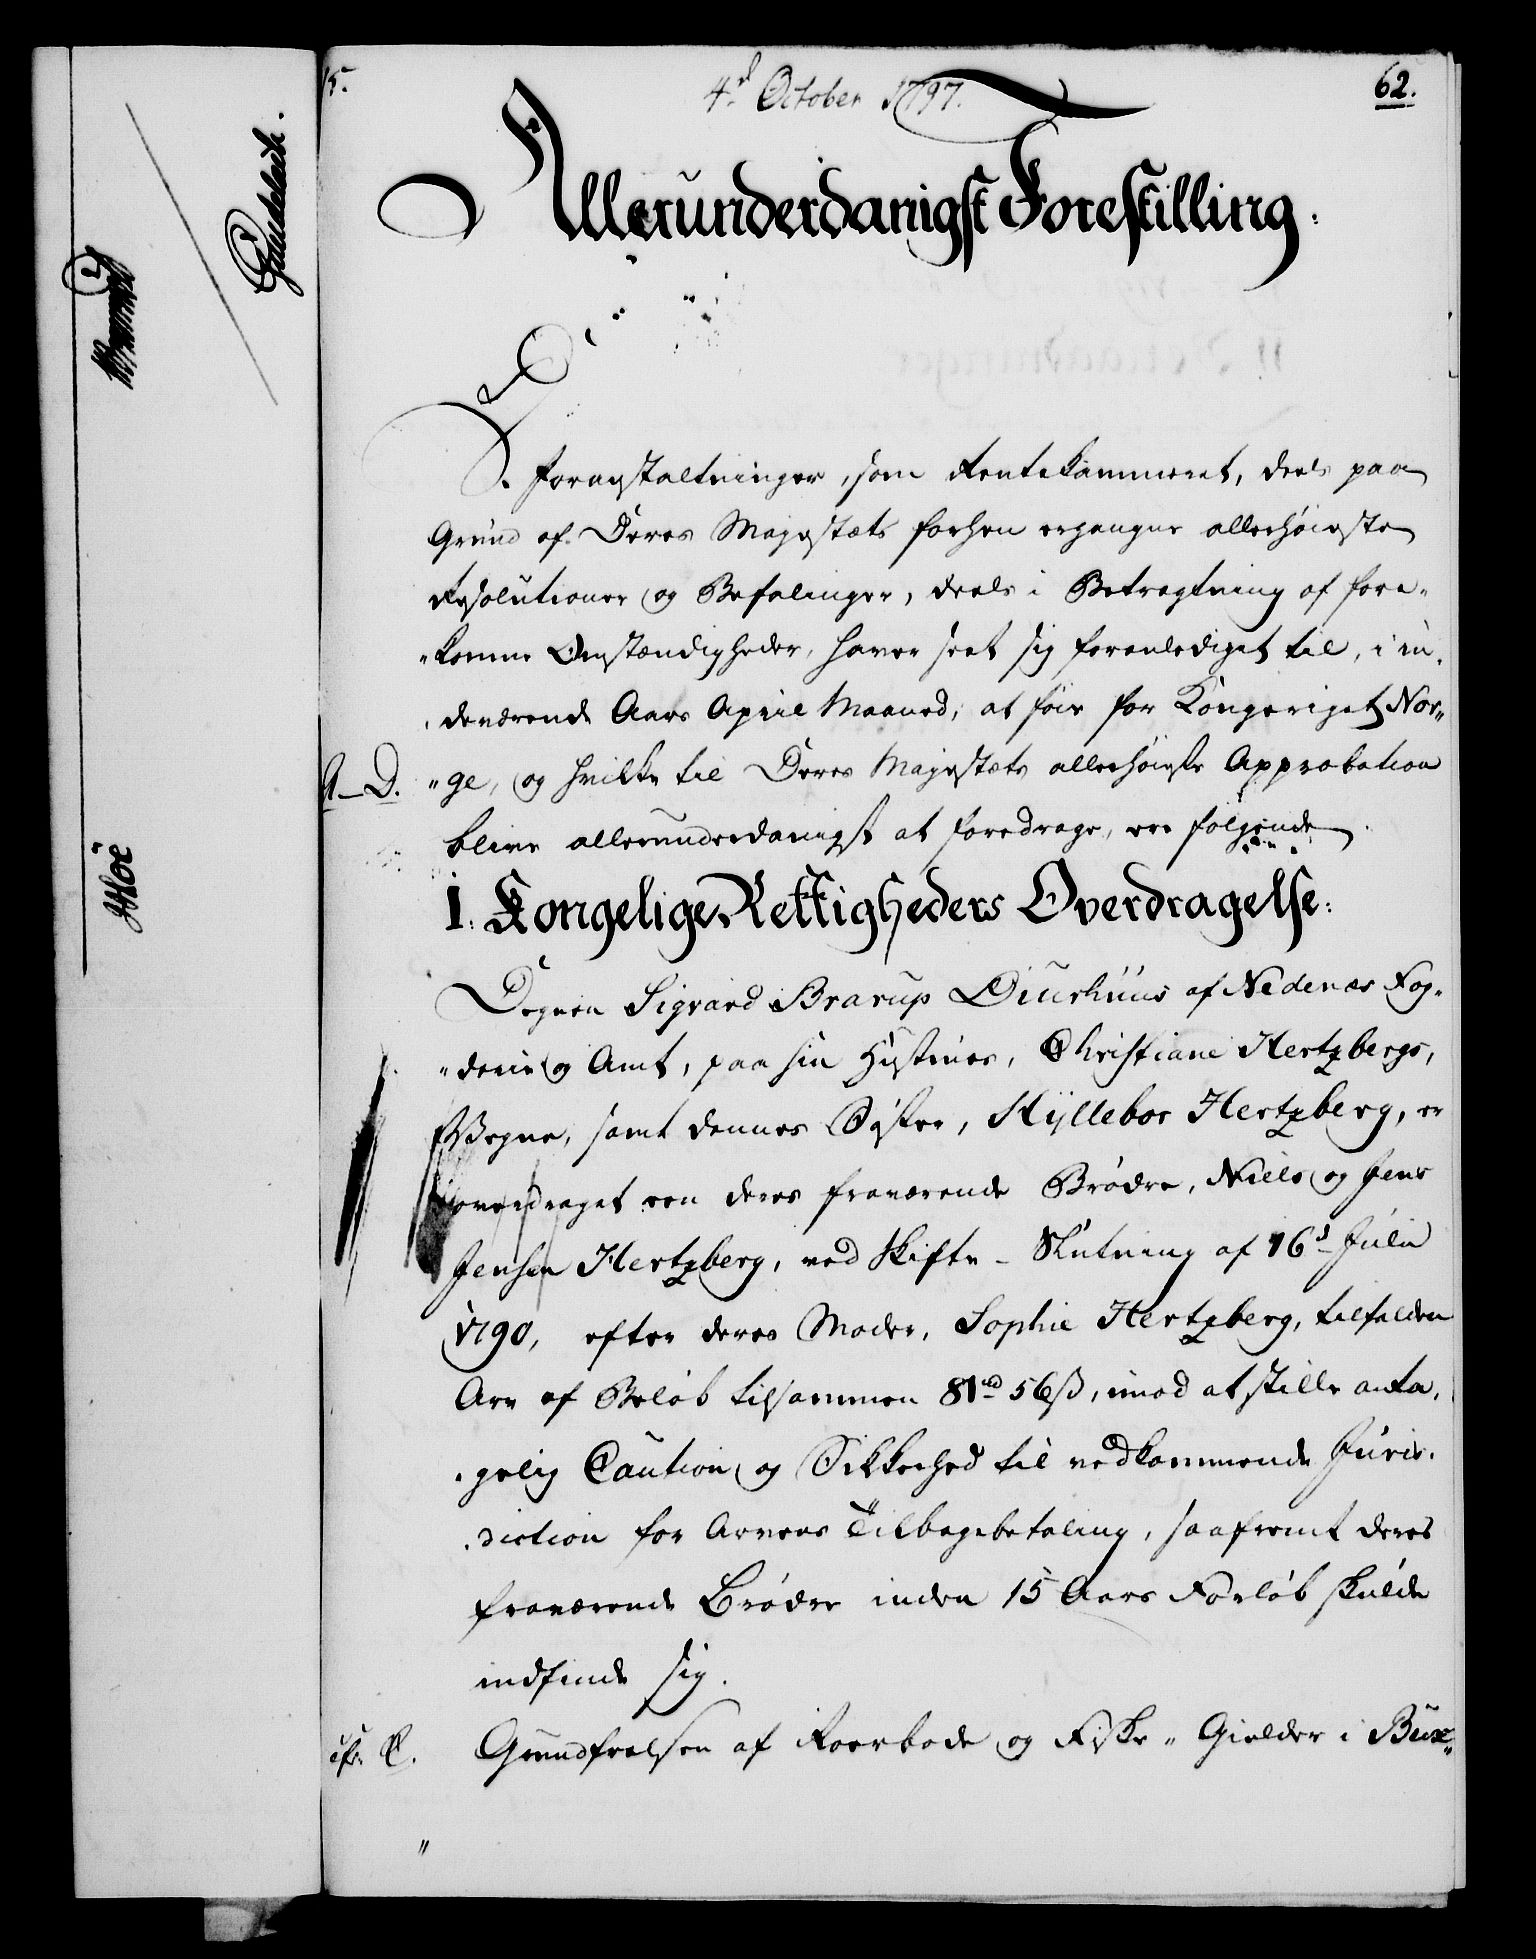 15.
4d October 1797.
62.
Allerunderdanigst Forestilling.
De Foranstaltninger, som Rentekammeret, deels paa
Grund af Deres Majestæts forhen ergangne allerhöieste
Resolutioner og Befalinger, deels i Betragtning af fore„
„komne Omstændigheder, haver seet sig foranlediget til, i in„
„deværende Aars April Maaned, at föie for Kongeriget Nor„
A_D. „ge, og hvilke til Deres Majestæts allerhöieste Approbation
blive allerunderdanigst at foredrage, ere fölgende
I. Kongelige Rettigheders Overdragelse:
Degnen Sigvard Brarup Diurhuus af Nedenæs Fog„
„derie og Amt, paa sin Hustrues, Christiane Hertzbergs,
Vegne, samt dennes Söster, Hyllebor Hertzberg, er
overdraget een deres fraværende Brödre, Niels og Jens
Jensen Hertzberg, ved Skifte-Slutning af 16d Julii
1790, efter deres Moder, Sophie Hertzberg, tilfalden
Arv af Belöb tilsammen 81rd 56ß, imod at stille anta„
„gelig Caution og Sikkerhed til vedkommende Juris„
„diction for Arvens Tilbagebetaling, saafremt deres
fraværende Brödre inden 15 Aars Forlöb skulde
indfinde sig.
cfr. E. Grundfrelsen af Roerbode og Fiske„Gielder i Bux„
„
Höe